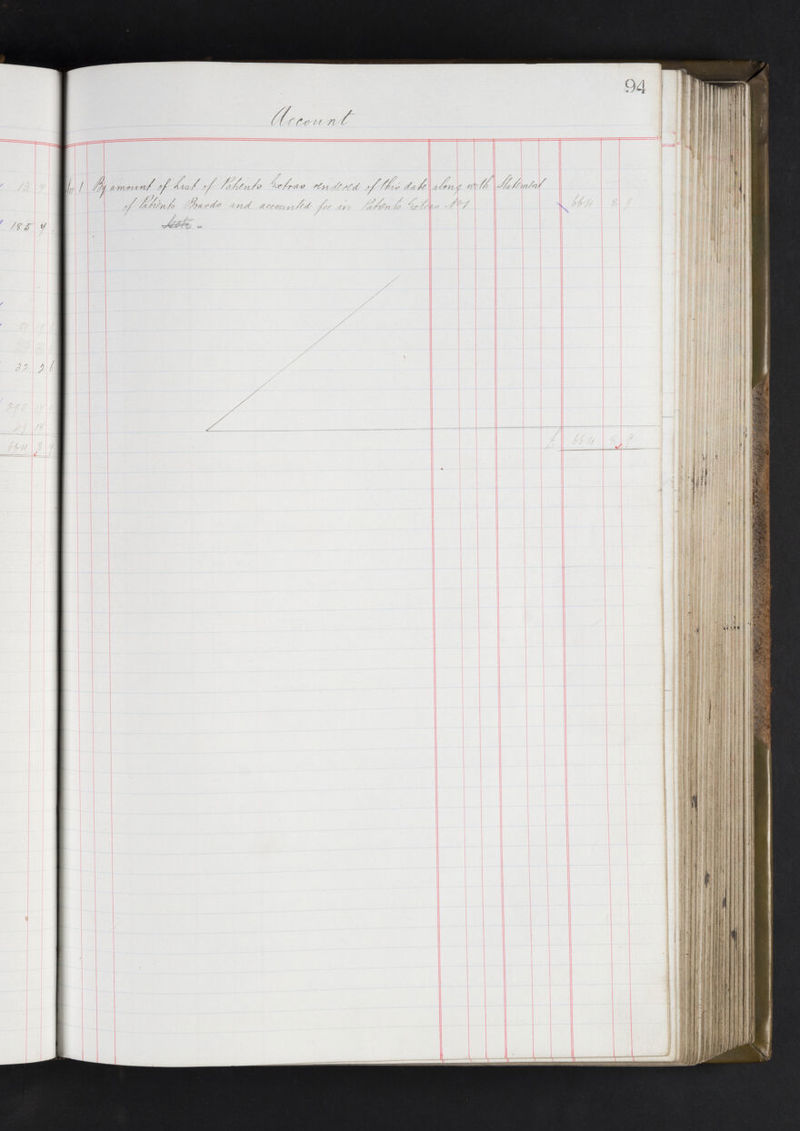 94
Account
By amount of List of Patients Extras rendered of this date along with Statement
of Patients Boards and accounted for in Patients Extras No 1 664 8 9
185 9
22 2
£ 664 8 9
664 8 9